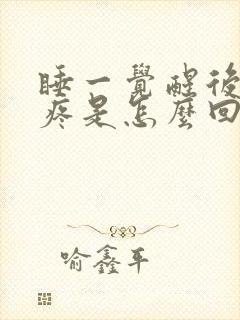 睡一覺醒後
疼是怎麼回
喻鑫平